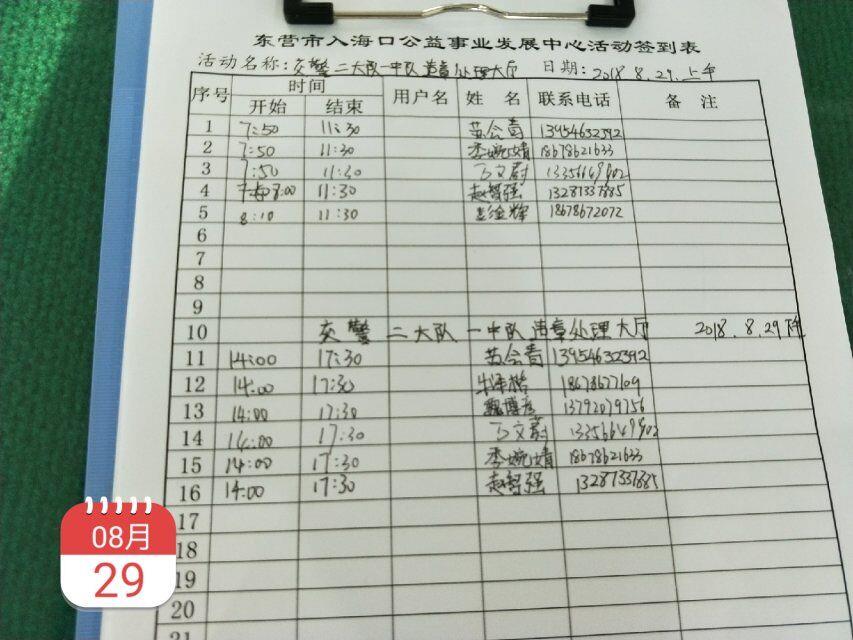 东营市入海口公益事业发展中心活动签到表
活动名称:交警二大队一中队违章处理大厅 日期:2018.8.29.上午
序号 时间 用户名 姓名 联系电话 备注
开始 结束
1 7:50 11:30 苗会青 13954632392
2 7:50 11:30 李婉婧 18678621633
3 7:50 11:30 文蔚 13356649802
4 8:00 11:30 赵智强 13287337885
5 8:10 11:30 彭金辉 18678672072
6
7
8
9
10 交警二大队一中队违章处理大厅 2018.8.29下午
11 14:00 17:30 苗会青 13954632392
12 14:00 17:30 18678677109
13 14:00 17:30 魏博彦 13792079756
14 14:00 17:30 文蔚 13356649802
15 14:00 17:30 李婉婧 18678621633
16 14:00 17:30 赵智强 13287337885
17
18
19
20
21
08月
29